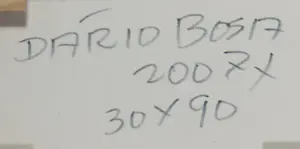 DÁRIO BOSA
2007X
30X90